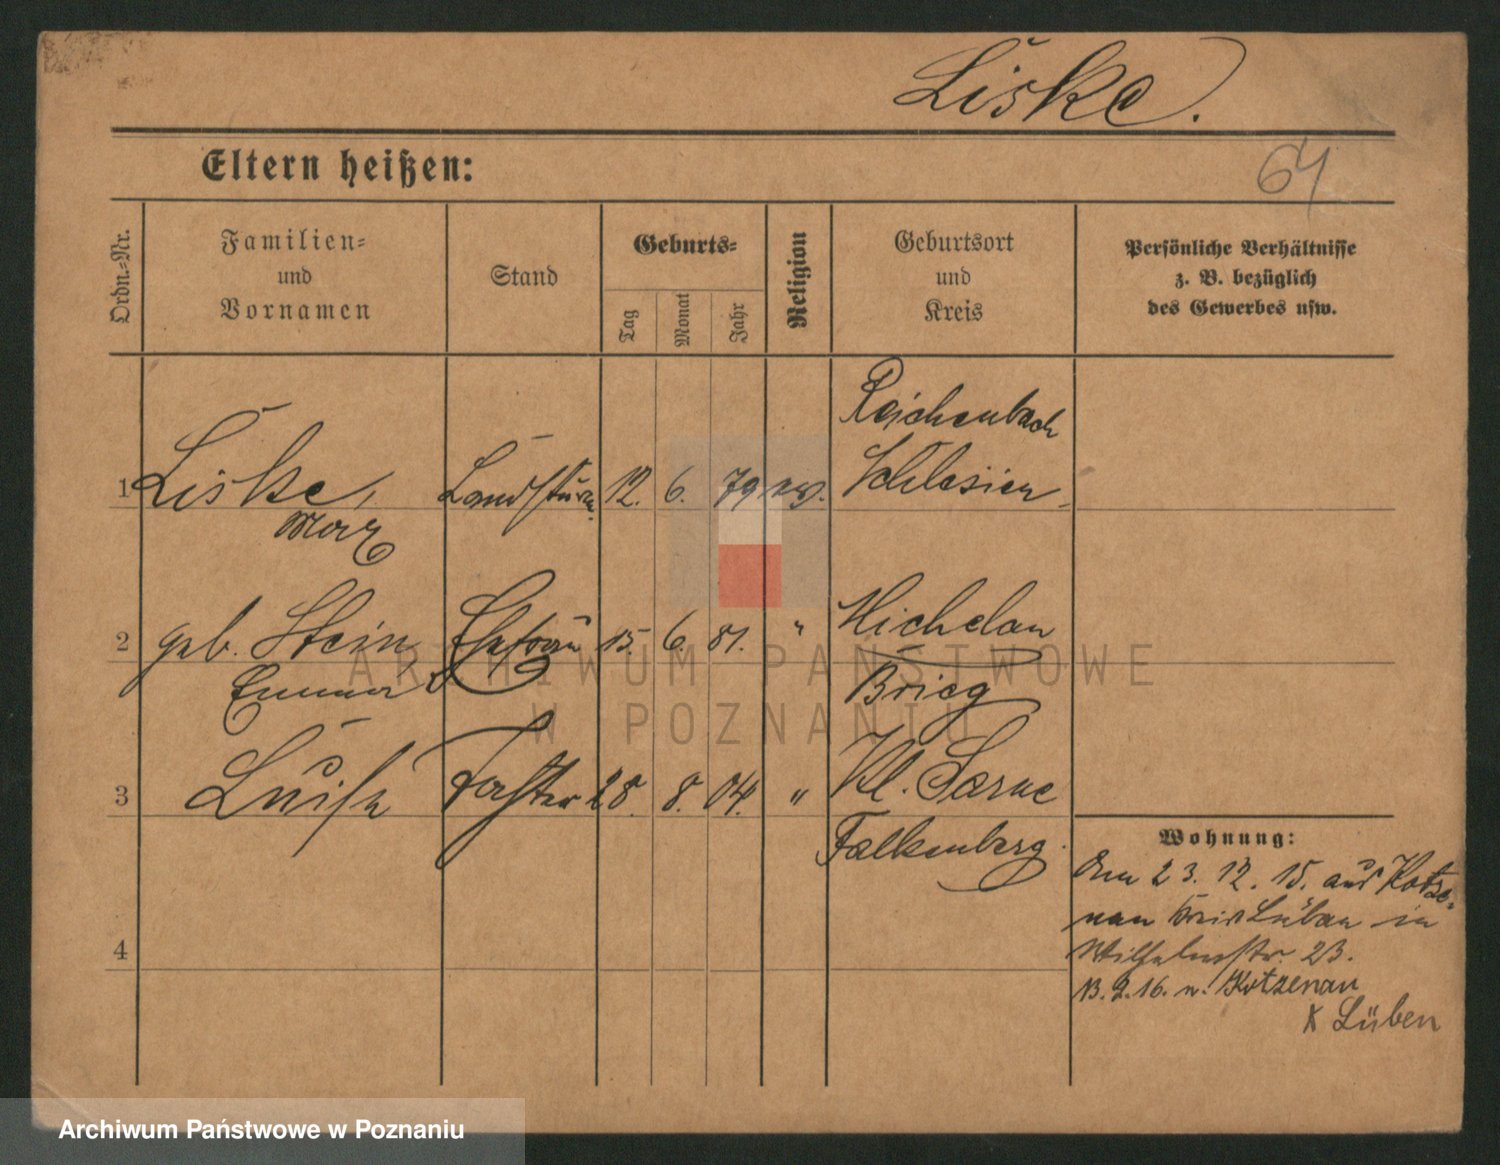 Liske.
Eltern heißen:
64
Ordn.-Nr.
Familien-
und
Vornamen
Stand
Geburts-
Tag
Monat
Jahr
Religion
Geburtsort
und
Kreis
Persönliche Verhältnisse
z. B. bezüglich
des Gewerbes usw.
Reichenbach
1 Liske, Landsturm. 12. 6. 79 ev. Schlesien
Max
2 geb. Stein Ehefrau 15. 6. 81. " Michelau
Emma Brieg
3 Luise Tochter 28. 8. 04. " Kl. Sarne
Falkenberg.
Wohnung:
Am 23. 12. 15. aus Kotze-
nau Kreis Lüben in
4
Wilhelmstr. 23.
13. 2. 16. n. Kotzenau
K Lüben
ARCHIWUM PAŃSTWOWE
W POZNANIU
Archiwum Państwowe w Poznaniu